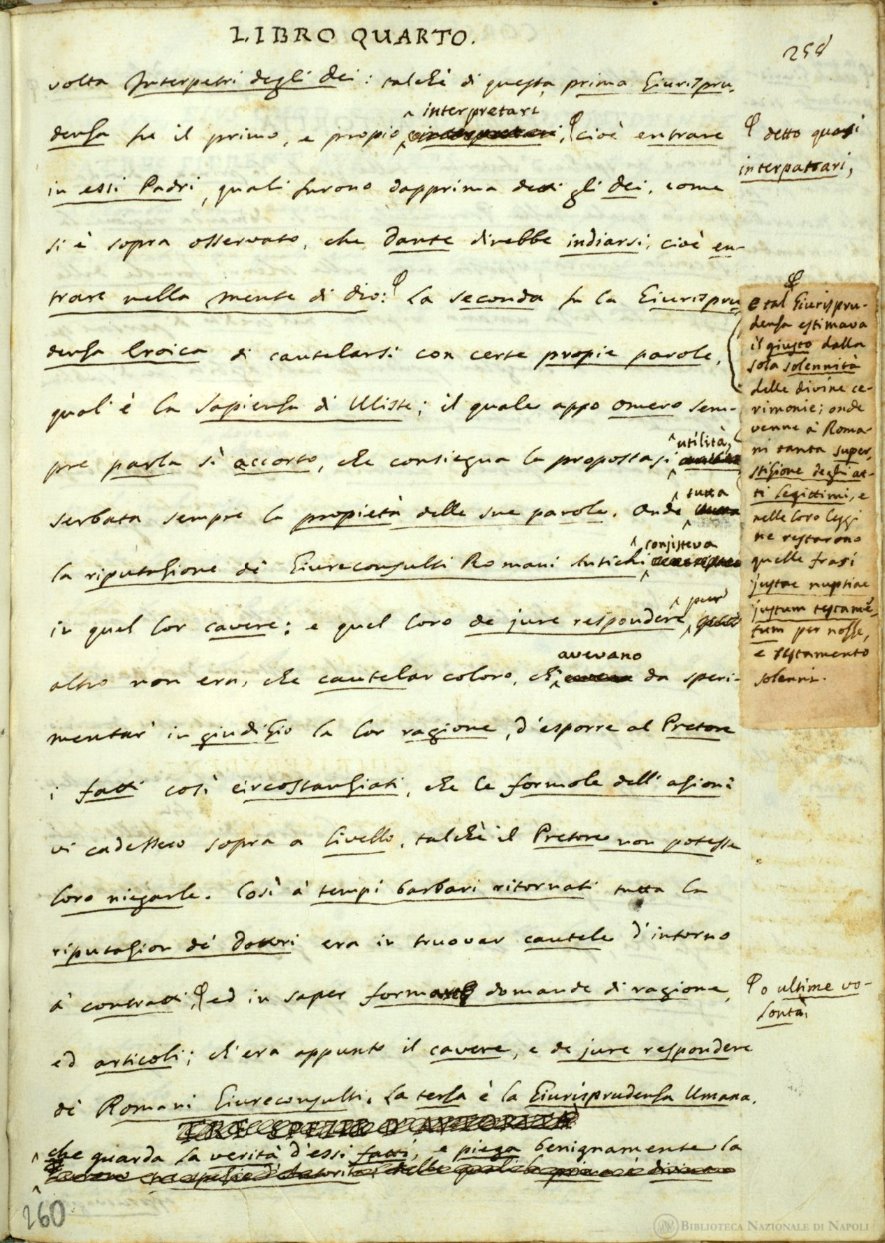 LIBRO QUARTO.
258
volta Interpetri degli Dei: talchè di questa prima Giurispru-
denza fu il primo, e propio interpretari, cioè entrare
in essi Padri, quali furono dapprima detti gli dei, come
si è sopra osservato, che Dante direbbe indiarsi, cioè en-
trare nella mente di dio: La seconda fu la Giurispru
denza Eroica di cautelarsi con certe propie parole,
qual è la Sapienza di Ulisse; il quale appo Omero sem-
pre parla sì accorto, che consiegua la propostasi utilità,
serbata sempre la propietà delle sue parole. Onde tutta
la riputazione de' Giureconsulti Romani Antichi consisteva
in quel lor cavere; e quel loro de jure respondere pur
altro non era, che cautelar coloro, ch' avevano da speri-
mentar' in giudizio la lor ragione, d'esporre al Pretore
i fatti così circostanziati, che le formole dell' azioni
vi cadessero sopra a livello, talchè il Pretore non potesse
loro niegarle. Così a' tempi barbari ritornati tutta la
riputazion de' Dottori era in truovar cautele d'intorno
a' contratti, ed in saper formare domande di ragione,
ed articoli; ch'era appunto il cavere, e de jure respondere
de' Romani Giureconsulti. La terza è la Giurisprudenza Umana,
TRE SPEZIE D'AUTORITÀ
che guarda la verità d'essi fatti, e piega benignamente la
detto quasi
interpatrari,
E tal Giurispru-
denza estimava
il giusto dalla
sola solennità
delle divine ce-
rimonie; onde
venne a' Roma-
ni tanta super-
stizione degli at-
ti legittimi, e
nelle loro leggi
ne restarono
quelle frasi
justae nuptiae
justum testamẽ-
tum per nozze,
e testamento
solenni.
o ultime vo-
lontà,
260
BIBLIOTECA NAZIONALE DI NAPOLI